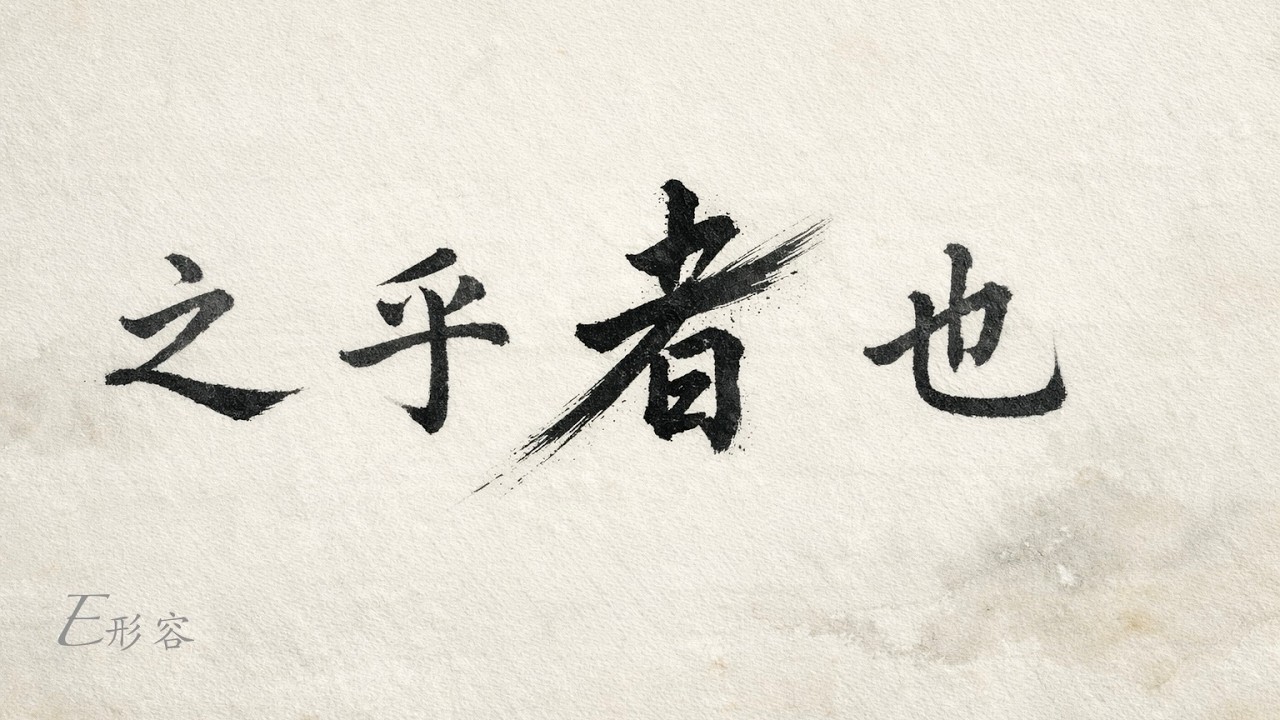 之乎者也
E形容